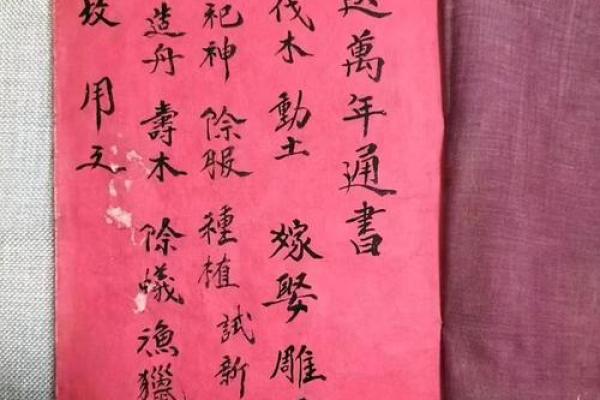 萬年通書
伐木 動土 嫁娶 雕
祀神 除服 種植 試新
造舟 壽木 除蟻 漁獵
用之